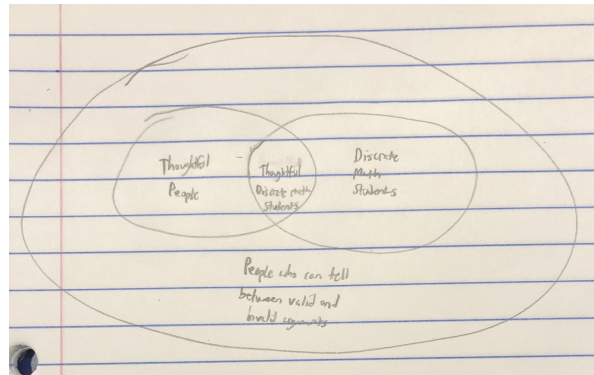 Thoughtful
People
Thoughtful
Discrete math
Students
Discrete
Math
Students
People who can tell
between valid and
Invalid arguments